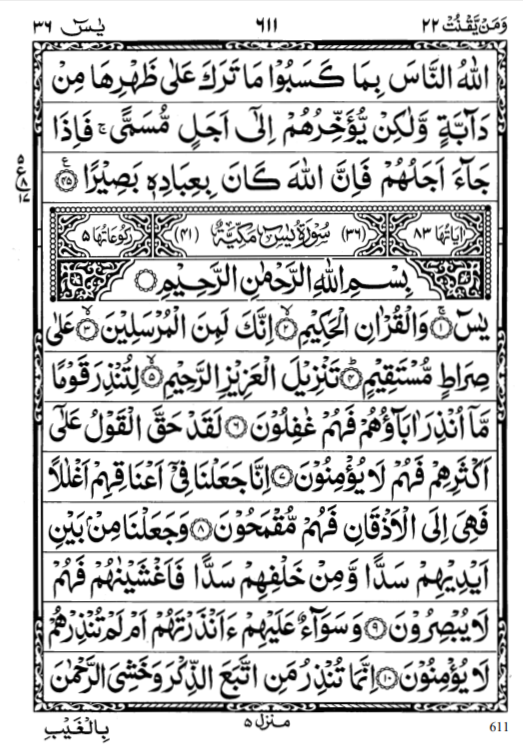 وَمَنْ يَّقْنُتْ ٢٢ ٦١١ يٰسٓ ٣٦
اللّٰهُ النَّاسَ بِمَا كَسَبُوْا مَا تَرَكَ عَلٰى ظَهْرِهَا مِنْ
دَآبَّةٍ وَّلٰكِنْ يُّؤَخِّرُهُمْ اِلٰٓى اَجَلٍ مُّسَمًّى ۚ فَاِذَا
جَآءَ اَجَلُهُمْ فَاِنَّ اللّٰهَ كَانَ بِعِبَادِهٖ بَصِيْرًا ﴿٤٥﴾
٥ ع ٨ ١٧
اٰيَاتُهَا ٨٣ (٣٦) سُوْرَةُ يٰسٓ مَكِّيَّةٌ (٤١) رُكُوْعَاتُهَا ٥
بِسْمِ اللّٰهِ الرَّحْمٰنِ الرَّحِيْمِ
يٰسٓ ﴿١﴾ وَالْقُرْاٰنِ الْحَكِيْمِ ﴿٢﴾ اِنَّكَ لَمِنَ الْمُرْسَلِيْنَ ﴿٣﴾ عَلٰى
صِرَاطٍ مُّسْتَقِيْمٍ ﴿٤﴾ تَنْزِيْلَ الْعَزِيْزِ الرَّحِيْمِ ﴿٥﴾ لِتُنْذِرَ قَوْمًا
مَّآ اُنْذِرَ اٰبَآؤُهُمْ فَهُمْ غٰفِلُوْنَ ﴿٦﴾ لَقَدْ حَقَّ الْقَوْلُ عَلٰٓى
اَكْثَرِهِمْ فَهُمْ لَا يُؤْمِنُوْنَ ﴿٧﴾ اِنَّا جَعَلْنَا فِيْٓ اَعْنَاقِهِمْ اَغْلٰلًا
فَهِيَ اِلَى الْاَذْقَانِ فَهُمْ مُّقْمَحُوْنَ ﴿٨﴾ وَجَعَلْنَا مِنْۢ بَيْنِ
اَيْدِيْهِمْ سَدًّا وَّمِنْ خَلْفِهِمْ سَدًّا فَاَغْشَيْنٰهُمْ فَهُمْ
لَا يُبْصِرُوْنَ ﴿٩﴾ وَسَوَآءٌ عَلَيْهِمْ ءَاَنْذَرْتَهُمْ اَمْ لَمْ تُنْذِرْهُمْ
لَا يُؤْمِنُوْنَ ﴿١٠﴾ اِنَّمَا تُنْذِرُ مَنِ اتَّبَعَ الذِّكْرَ وَخَشِيَ الرَّحْمٰنَ
بِالْغَيْبِ
منزل ٥
611